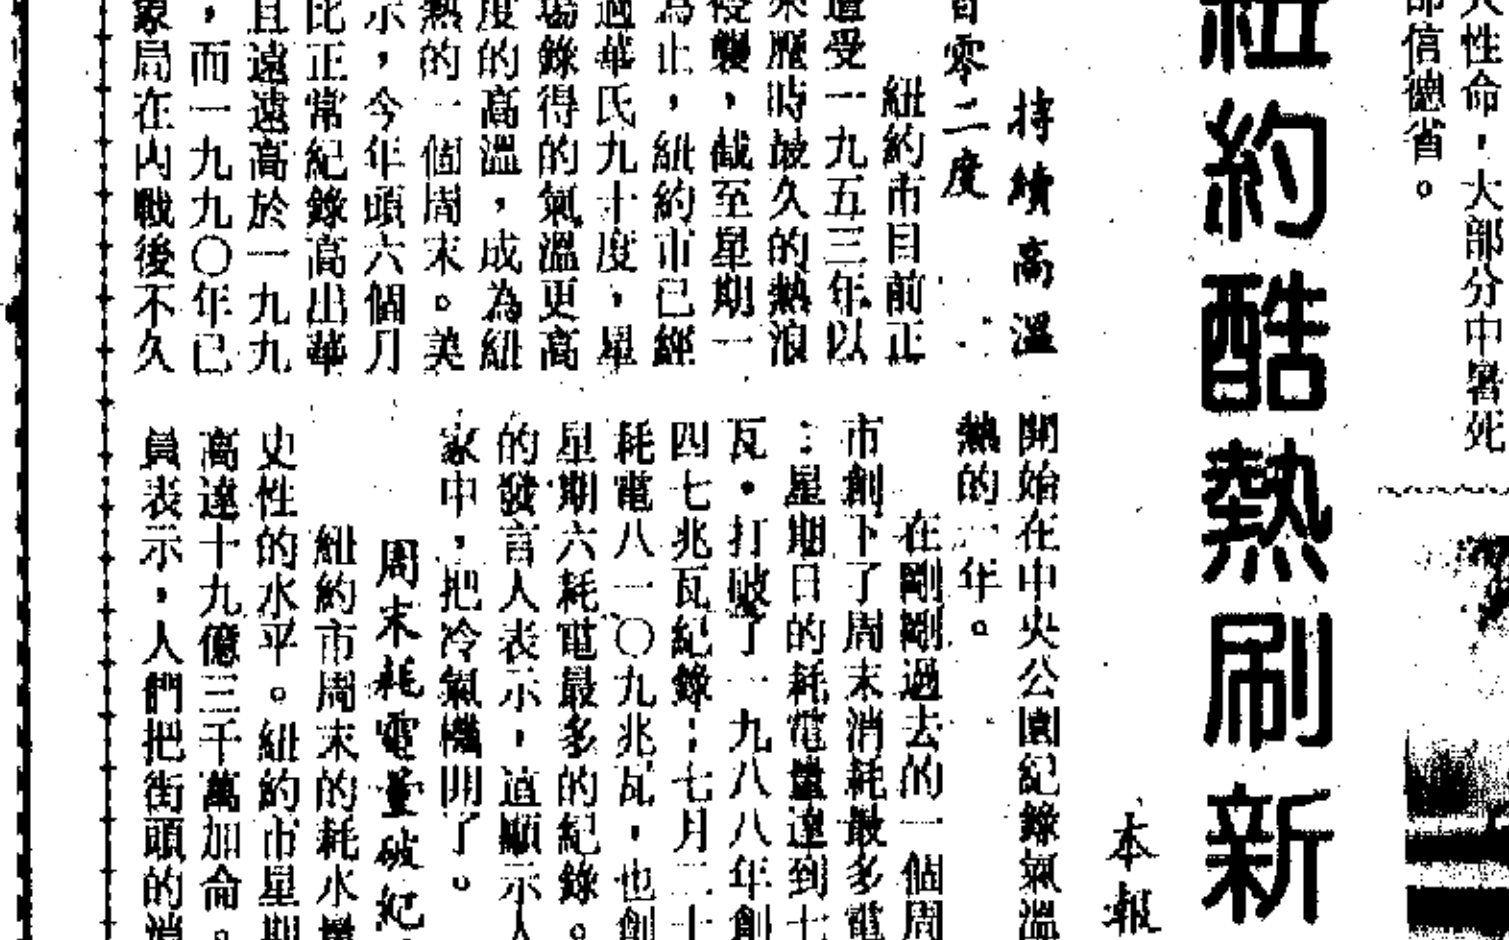 人性命，大部分中暑死
部信德省。
紐約酷熱刷新
本報
持續高溫
百零二度
紐約市目前正
遭受一九五三年以
來歷時最久的熱浪
侵襲，截至星期一
為止，紐約市已經
過華氏九十度，星
場錄得的氣溫更高
度的高溫，成為紐
熱的一個周末。美
示，今年頭六個月
比正常紀錄高出華
且遠遠高於一九九
，而一九九〇年已
象局在內戰後不久
開始在中央公園紀錄氣溫
熱的一年。
在剛剛過去的一個周
市創下了周末消耗最多電
：星期日的耗電量達到七
瓦，打破了一九八八年創
四七兆瓦紀錄；七月二十
耗電八一〇九兆瓦，也創
星期六耗電最多的紀錄。
的發言人表示，這顯示人
家中，把冷氣機開了。
周末耗電量破紀
紐約市周末的耗水量
史性的水平。紐約市星期
高達十九億三千萬加侖。
員表示，人們把街頭的消